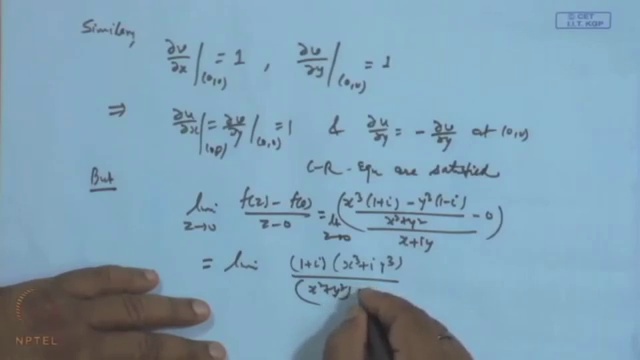 © CET
I.I.T. KGP
Similarly
∂v/∂x|(0,0) = 1 , ∂v/∂y|(0,0) = 1
⇒ ∂u/∂x|(0,0) = ∂v/∂y|(0,0) = 1 & ∂u/∂y = - ∂v/∂y at (0,0)
C-R- Equ are satisfied
But
lim z→0 f(z) - f(0) / z-0 = lt z→0 ( x³(1+i) - y³(1-i) / x²+y² - 0 ) / x+iy
= lim (1+i) (x³+iy³) / (x²+y²)
NPTEL